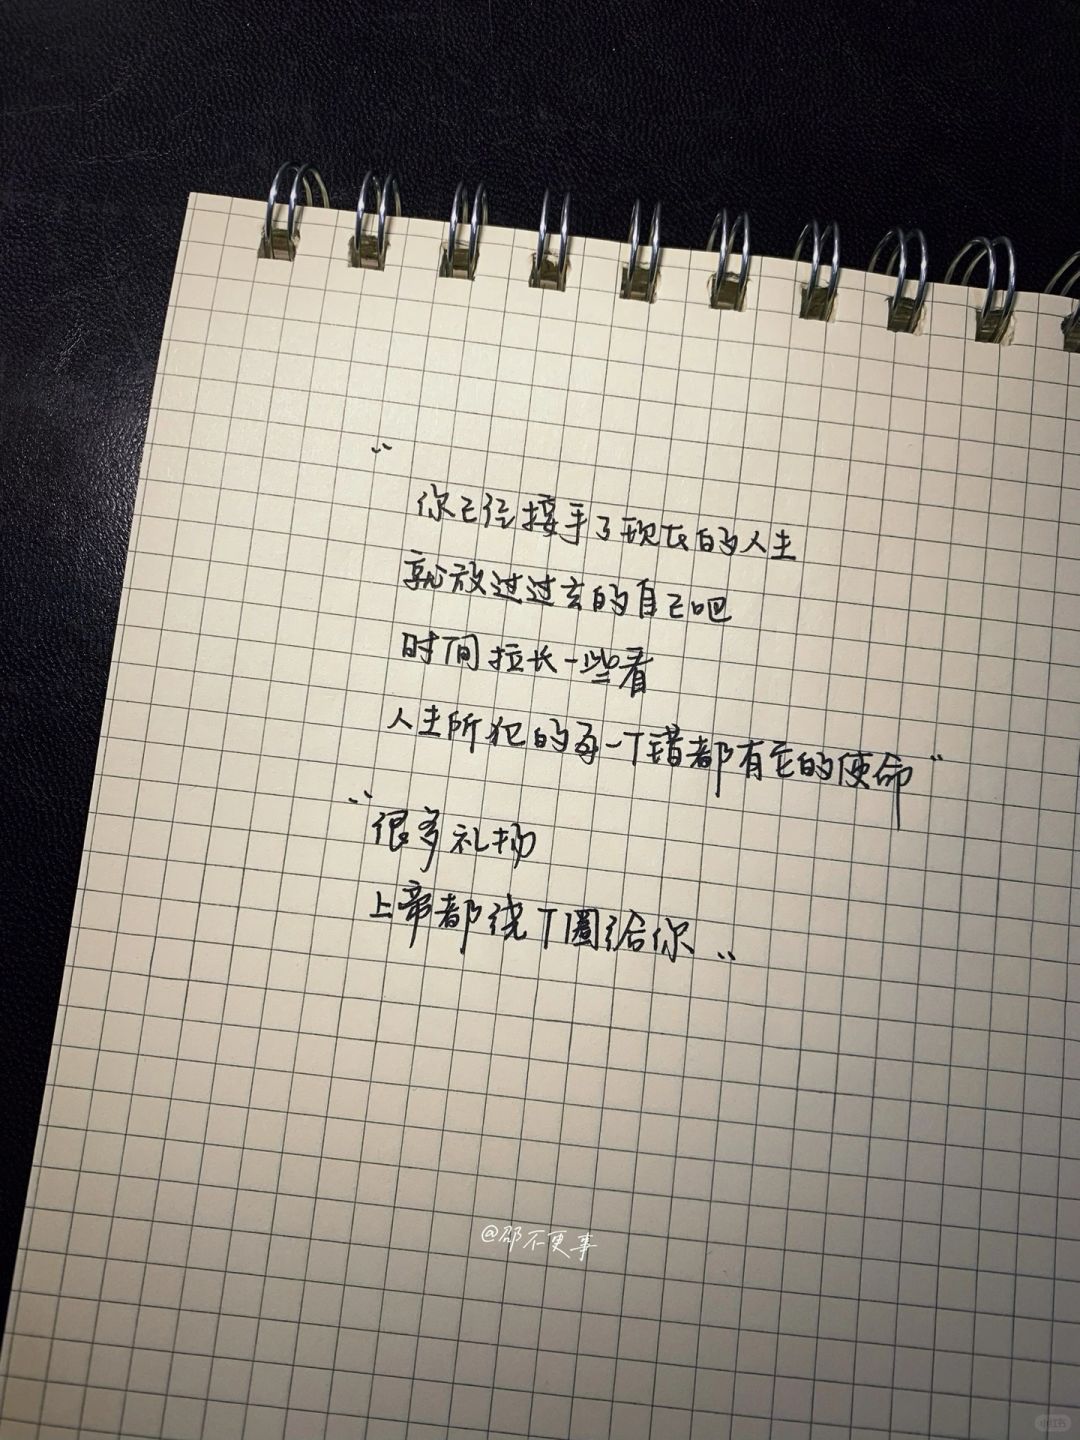 “
你已经接手了现在的人生
就放过过去的自己吧
时间拉长一些看
人生所犯的每一个错都有它的使命”
“很多礼物
上帝都绕了圈给你”
@邵不更事
小红书